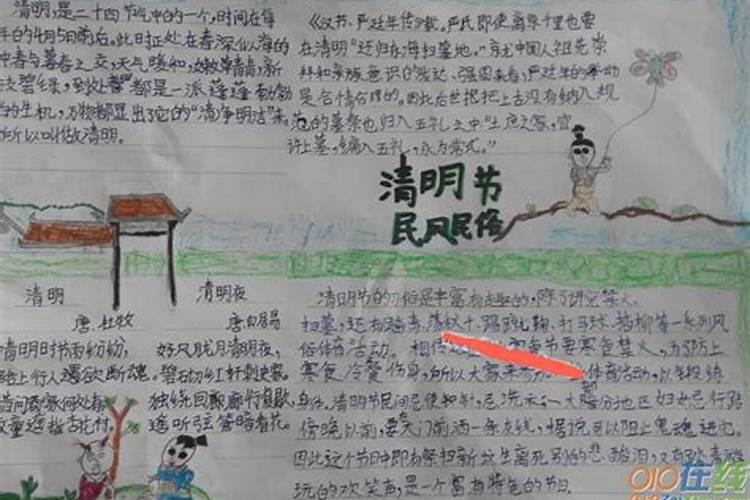 清明,是二十四节气中的一个,时间在每
年的4月5日前后。此时正处在春深似海的
仲春与暮春之交,天气暖和,
碧绿,到处都是一派蓬蓬勃勃
的生机,万物都显出它的“清净明洁”来,
所以叫做清明。
《汉书·严延年传》载。严氏即使离京千里也要
在清明“还归东海扫墓地。”就中国人祖先崇
拜和亲族意识的发达、强固来看,严延年的举动
是合情合理的。因此后世把把上古没有纳入规
范的墓祭也归入五礼之中:“士庶之家,宜
许上墓,编入五礼,永为常式。”
清明节
民风民俗
清明
唐.杜牧
清明时节雨纷纷,
路上行人遇欲断魂。
借问酒家何处有
牧童遥指杏花村。
清明夜
唐白居易
好风胧月清明夜,
碧石切红轩刺史家。
独绕回廊廊行复歇,
遥听弦管暗看花。
清明节的习俗是丰富有趣的,除了讲究禁火、
扫墓,还有踏青、荡秋千、蹴鞠、打马球、插柳等一系列风
俗体育活动。相传 寒食节要寒食禁火,为防止
寒食冷餐伤身,所以大家来 体育活动,以锻炼
身体。清明节民间忌使和针,忌洗衣,大部分地区妇女忌行路
傍晚以前,要大门前洒一条灰线,据说可以阻止鬼魂进宅。
因此这个节日中即有祭扫新坟生离死别的悲酸泪,又有踏青游
玩的欢笑声,是一个富有特色的节日
010在线